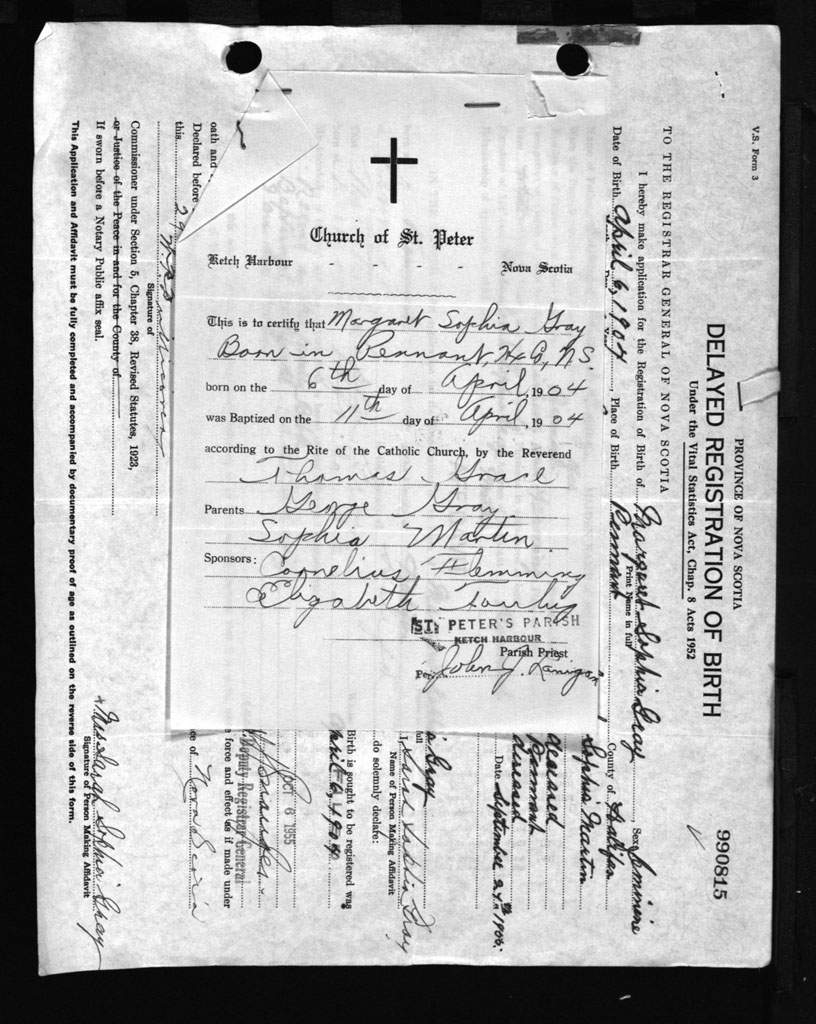 Church of St. Peter
Ketch Harbour - - - - Nova Scotia
This is to certify that Margaret Sophia Gray
Born in Pennant, Hx Co, N.S.
born on the 6th day of April, 1904
was Baptized on the 11th day of April, 1904
according to the Rite of the Catholic Church, by the Reverend
Thomas Grace
Parents George Gray
Sophia Martin
Sponsors: Cornelius Flemming
Elizabeth
ST. PETER'S PARISH
KETCH HARBOUR
Parish Priest
Per John J. Lanigan
V.S. Form 3
PROVINCE OF NOVA SCOTIA
DELAYED REGISTRATION OF BIRTH
Under the Vital Statistics Act, Chap. 8 Acts 1952
990815
TO THE REGISTRAR GENERAL OF NOVA SCOTIA
I hereby make application for the Registration of Birth of Margaret Sophia Gray, Sex Feminine
Print Name in full
Date of Birth April 6, 1904, Place of Birth Pennant County of Halifax
Sophia Martin
deceased
Pennant
deceased
Date September 24th 1906.
Gray
full
I, Sophia Gray
Name of Person Making Affidavit
do solemnly declare:
Birth is sought to be registered was
April 6, 1904
OCT 6 1955
Deputy Registrar General
force and effect as if made under
ce of Nova Scotia
oath and
Declared before
this 29
Signature of
Commissioner under Section 5, Chapter 38, Revised Statutes, 1923,
or Justice of the Peace in and for the County of
If sworn before a Notary Public affix seal.
x Mrs. Sarah Sophia Gray
Signature of Person Making Affidavit
This Application and Affidavit must be fully completed and accompanied by documentary proof of age as outlined on the reverse side of this form.